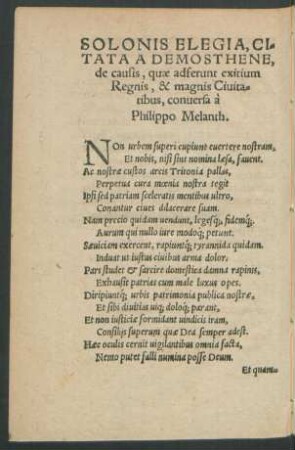 SOLONIS ELEGIA, CI-
TATA A DEMOSTHENE,
de causis, quæ adferunt exitium
Regnis, & magnis Ciuita-
tibus, conuersa à
Philippo Melanth.
NOn urbem superi cupiunt euertere nostram,
Et nobis, nisi sint numina læsa, fauent.
Ac nostræ custos arcis Tritonia pallas,
Perpetua cura mœnia nostra tegit
Ipsi sed patriam sceleratis mentibus ultro,
Conantur ciues dilacerare suam.
Nam precio quidam uendunt, legesq;, fidemq́;.
Aurum qui nullo iure modoq́; petunt.
Sæuiciam exercent, rapiuntq́; tyrannida quidam.
Induat ut iustus ciuibus arma dolor.
Pars studet & sarcire domestica damna rapinis,
Exhausit patrias cum male luxus opes.
Diripiuntq́; urbis patrimonia publica nostræ,
Et sibi diuitias uiq; doloq́; parant,
Et non iusticiæ formidant uindicis iram,
Consilijs superum quæ Dea semper adest.
Hæc oculis cernit uigilantibus omnia facta,
Nemo putet falli numina posse Deum.
Et quam-